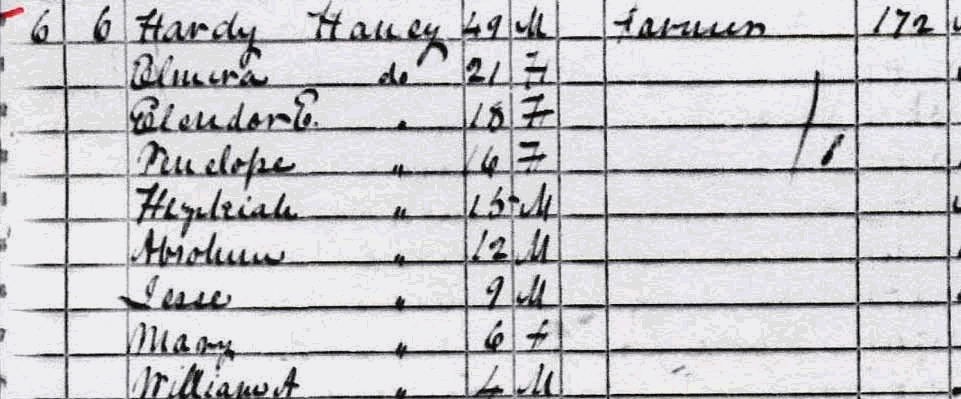 6 6 Hardy Haney 49 M Farmer 172
Elmira do 21 F
Elendor E. " 18 F
Penelope " 16 F
Hezekiah " 15 M
Absolum " 12 M
Jesse " 9 M
Mary " 6 f
William A " 4 M